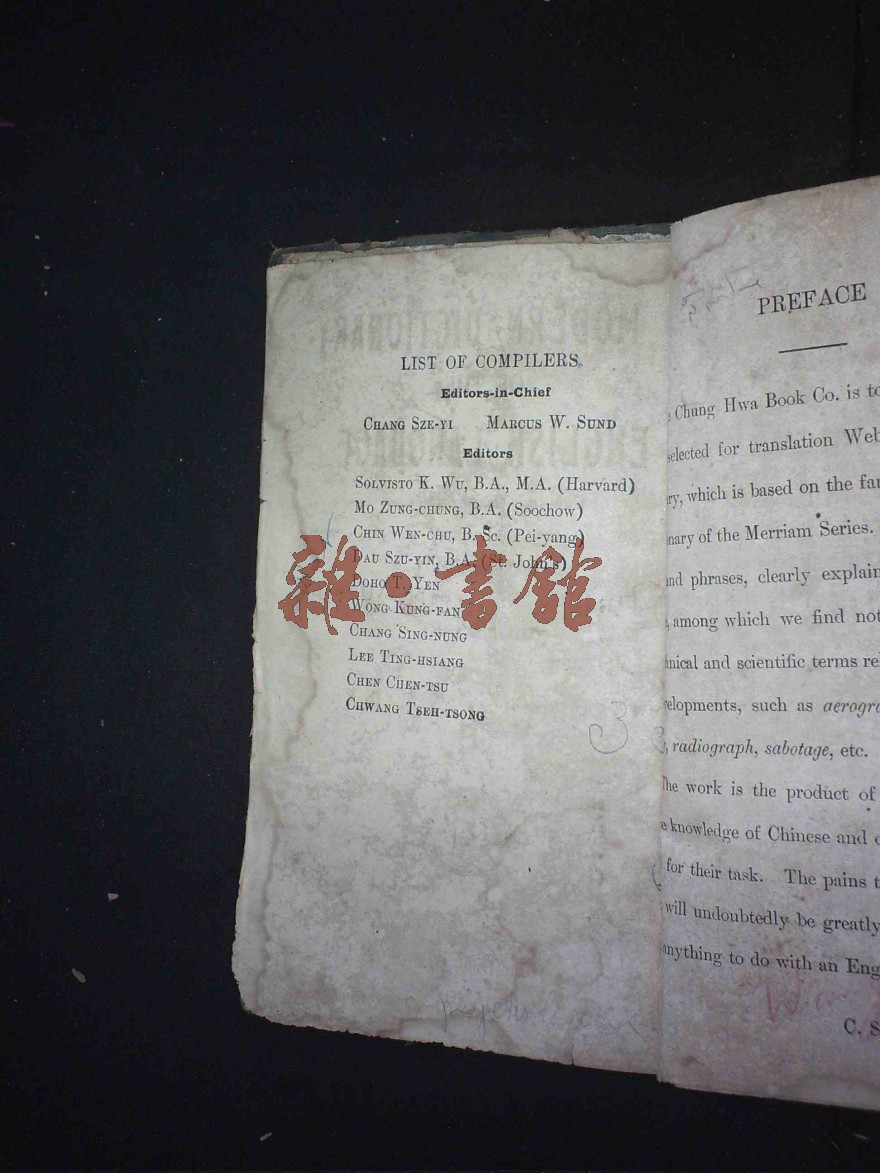 LIST OF COMPILERS
Editors-in-Chief
CHANG SZE-YI MARCUS W. SUND
Editors
SOLVISTO K. WU, B.A., M.A. (Harvard)
MO ZUNG-CHUNG, B.A. (Soochow)
CHIN WEN-CHU, B. Sc. (Pei-yang)
DAU SZU-YIN, B.A. (St. John's)
DOHO T. YEN
WONG KUNG-FAN
CHANG SING-NUNG
LEE TING-HSIANG
CHEN CHEN-TSU
CHWANG TSEH-TSONG
3
雜·書館
PREFACE
Chung Hwa Book Co. is to
selected for translation Web
ry, which is based on the fa
nary of the Merriam Series.
nd phrases, clearly explain
, among which we find not
nical and scientific terms re
elopments, such as aerogr
, radiograph, sabotage, etc.
The work is the product of
e knowledge of Chinese and
for their task. The pains t
will undoubtedly be greatly
anything to do with an Eng
C. S